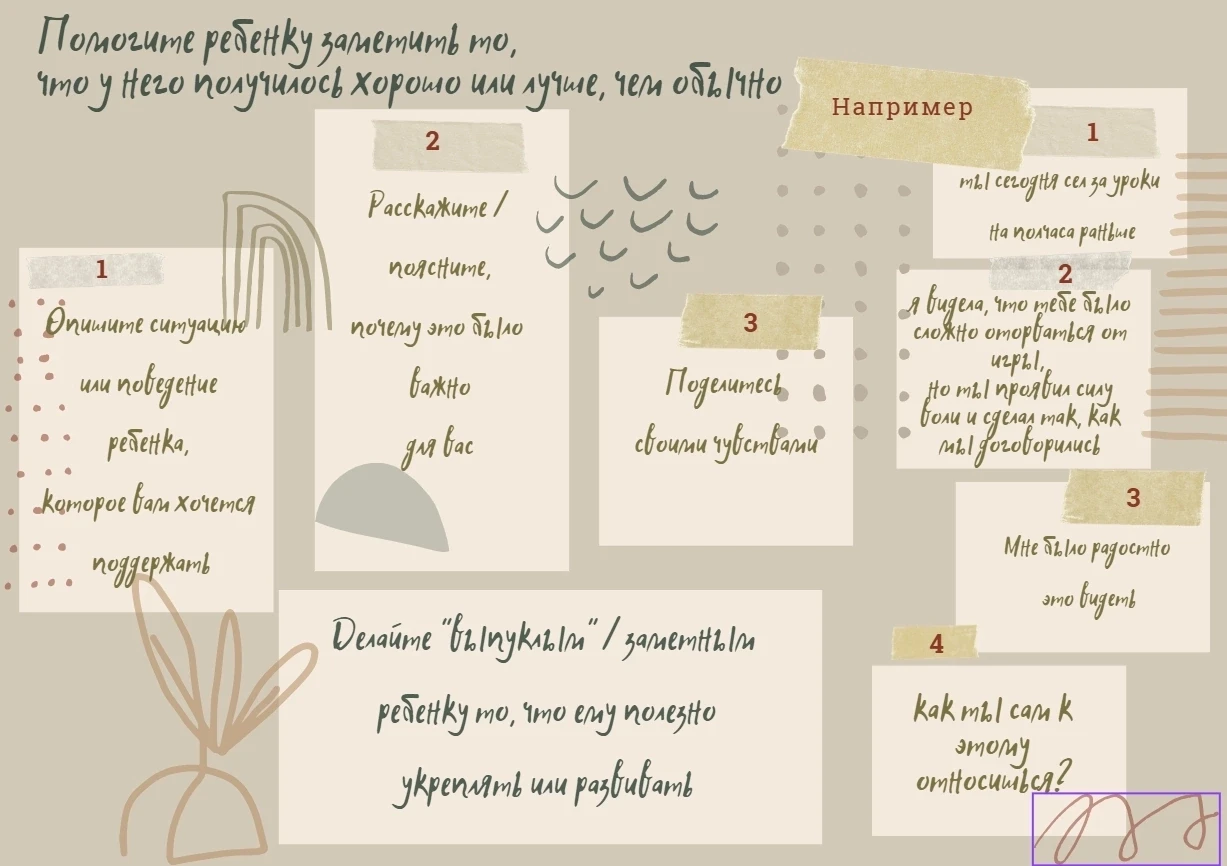 Помогите ребенку заметить то,
что у него получилось хорошо или лучше, чем обычно
1
Опишите ситуацию
или поведение
ребенка,
которое вам хочется
поддержать
2
Расскажите /
поясните,
почему это было
важно
для вас
3
Поделитесь
своими чувствами
Делайте "выпуклым" / заметным
ребенку то, что ему полезно
укреплять или развивать
Например
1
ты сегодня сел за уроки
на полчаса раньше
2
я видела, что тебе было
сложно оторваться от
игры,
но ты проявил силу
воли и сделал так, как
мы договорились
3
Мне было радостно
это видеть
4
как ты сам к
этому
относишься?